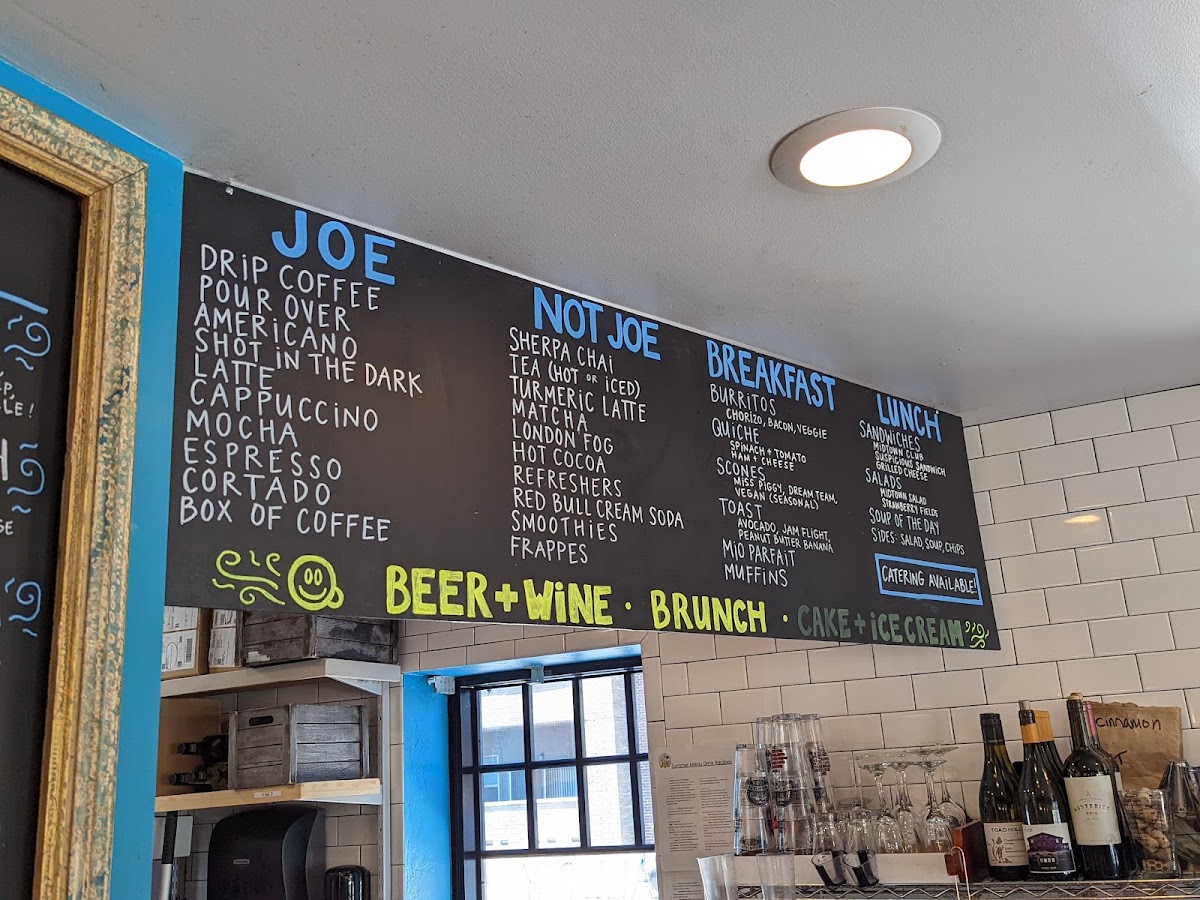 JOE
DRIP COFFEE
POUR OVER
AMERICANO
SHOT IN THE DARK
LATTE
CAPPUCCINO
MOCHA
ESPRESSO
CORTADO
BOX OF COFFEE
NOT JOE
SHERPA CHAI
TEA (HOT OR ICED)
TURMERIC LATTE
MATCHA
LONDON FOG
HOT COCOA
REFRESHERS
RED BULL CREAM SODA
SMOOTHIES
FRAPPES
BREAKFAST
BURRITOS
CHORIZO, BACON, VEGGIE
QUICHE
SPINACH + TOMATO
HAM + CHEESE
SCONES
MISS PIGGY, DREAM TEAM,
VEGAN (SEASONAL)
TOAST
AVOCADO, JAM FLIGHT,
PEANUT BUTTER BANANA
MIO PARFAIT
MUFFINS
LUNCH
SANDWICHES
MIDTOWN CLUB
SUSPICIOUS SANDWICH
GRILLED CHEESE
SALADS
MIDTOWN SALAD
STRAWBERRY FIELDS
SOUP OF THE DAY
SIDES: SALAD, SOUP, CHIPS
CATERING AVAILABLE!
BEER + WINE · BRUNCH · CAKE + ICE CREAM
Summer Menu Drink Recipes
cinnamon
TOAD HOLLOW